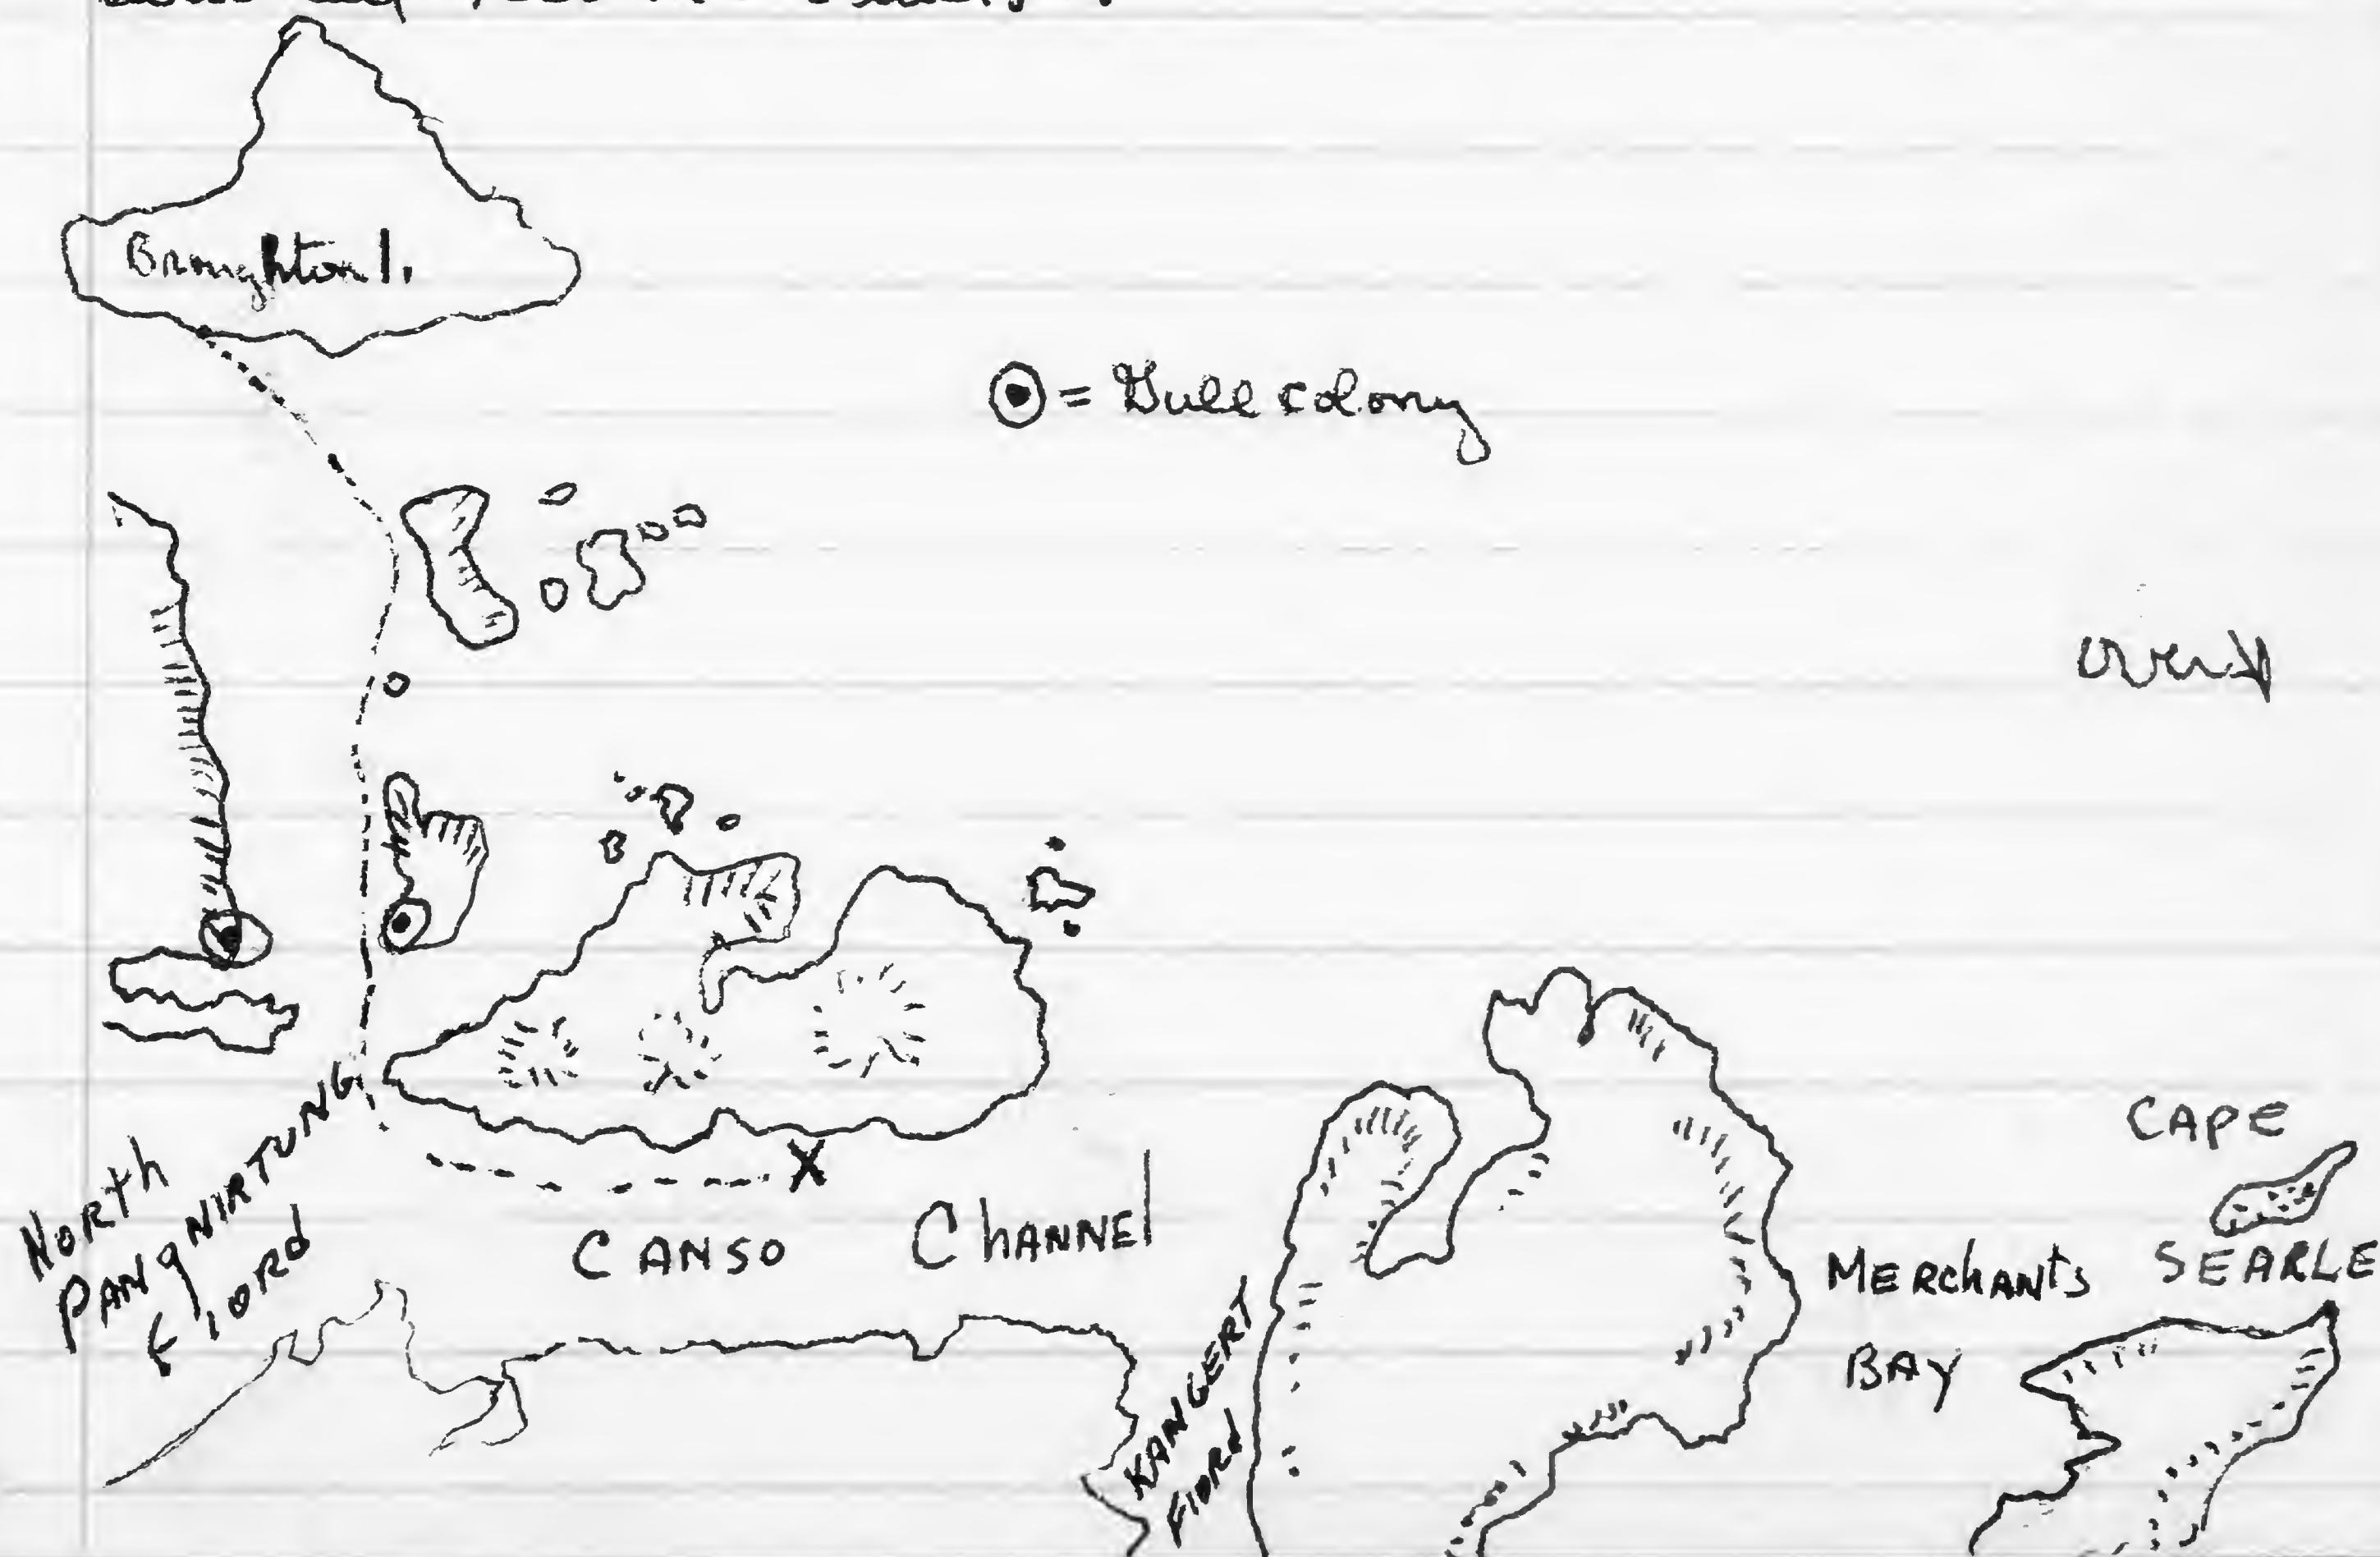 Broughton I.
= Gull colony
over
NORTH
PANGNIRTUNG
FIORD
X
CANSO CHANNEL
KANGERT
FIORD
MERCHANTS
BAY
CAPE
SEARLE